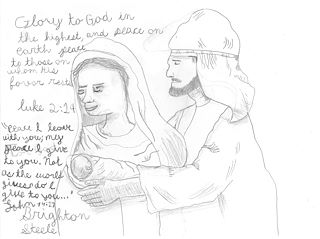 Glory to God in
the highest, and peace on
earth peace
to those on
whom his
favor rests
Luke 2:14
"Peace I leave
with you; my
peace I give
to you. Not
as the world
gives do I
give to you..."
John 14:27
Brighton
Steele